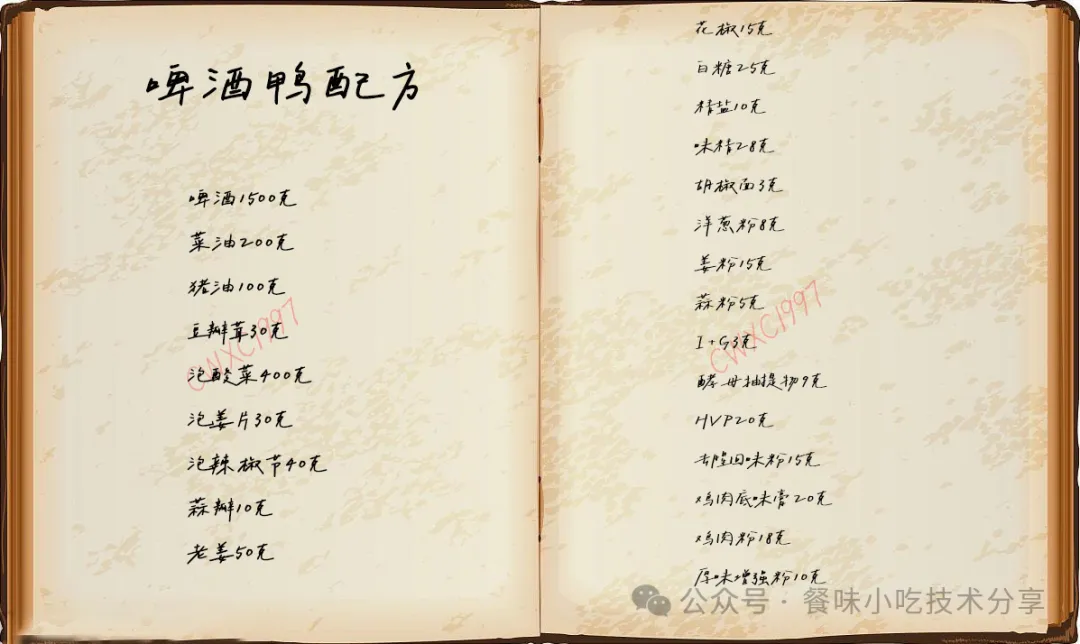 啤酒鸭配方
啤酒1500克
菜油200克
猪油100克
豆瓣茸30克
泡酸菜400克
泡姜片30克
泡辣椒节40克
蒜瓣10克
老姜50克
CWXC1997
花椒15克
白糖25克
精盐10克
味精28克
胡椒面3克
洋葱粉8克
姜粉15克
蒜粉5克
I+G3克
酵母抽提物9克
HVP20克
去腥回味粉15克
鸡肉底味膏20克
鸡肉粉18克
厚味增强粉10克
CWXC1997
公众号·餐味小吃技术分享